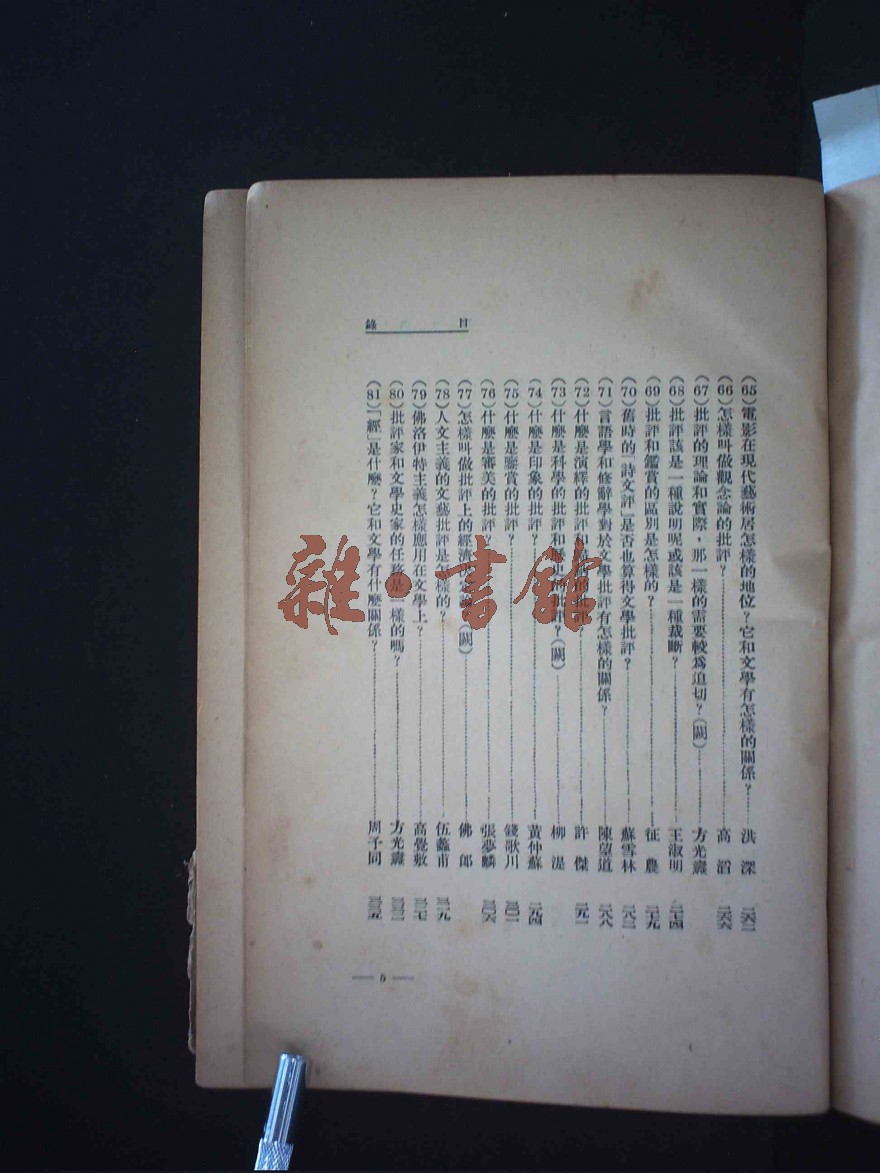 目錄
(65)電影在現代藝術居怎樣的地位？它和文學有怎樣的關係？……洪深 二六二
(66)怎樣叫做觀念論的批評？……高滔 二六六
(67)批評的理論和實際，那一樣的需要較爲迫切？（闕）……方光燾
(68)批評該是一種說明呢或該是一種裁斷？……王淑明 二七四
(69)批評和鑑賞的區別是怎樣的？……征農 二七九
(70)舊時的「詩文評」是否也算得文學批評？……蘇雪林 二八二
(71)言語學和修辭學對於文學批評有怎樣的關係？……陳望道 二八八
(72)什麼是演繹的批評的批評？……許傑 二九一
(73)什麼是科學的批評和批評？（闕）……柳湜
(74)什麼是印象的批評？……黃仲蘇 二九四
(75)什麼是鑒賞的批評？……錢歌川 三〇一
(76)什麼是審美的批評……張夢麟 三〇六
(77)怎樣叫做批評上的經濟（闕）……佛郎
(78)人文主義的文藝批評是怎樣的？……伍蠡甫 三一九
(79)佛洛伊特主義怎樣應用在文學上？……高覺敷 三二七
(80)批評家和文學史家的任務是一樣的嗎？……方光燾 三三二
(81)「經」是什麼？它和文學有什麼關係？……周予同 三三五
— 5 —
雜·書館